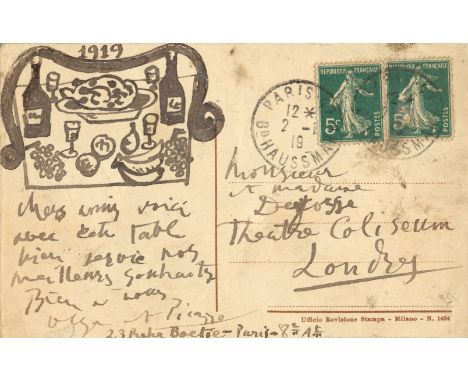 1919
PARIS
12
2
19
Bd HAUSSM
REPUBLIQUE FRANÇAISE
REPUBLIQUE FRANÇAISE
5c
5c
POSTES
POSTES
Monsieur
et madame
Theatre Coliseum
Londres
voici
avec cette table
bien servie nos
meilleurs souhaits
Bien a vous
Olga et Picasso
23 Rue La Boetie - Paris - 8e Art
Ufficio Revisione Stampa - Milano - N. 1454